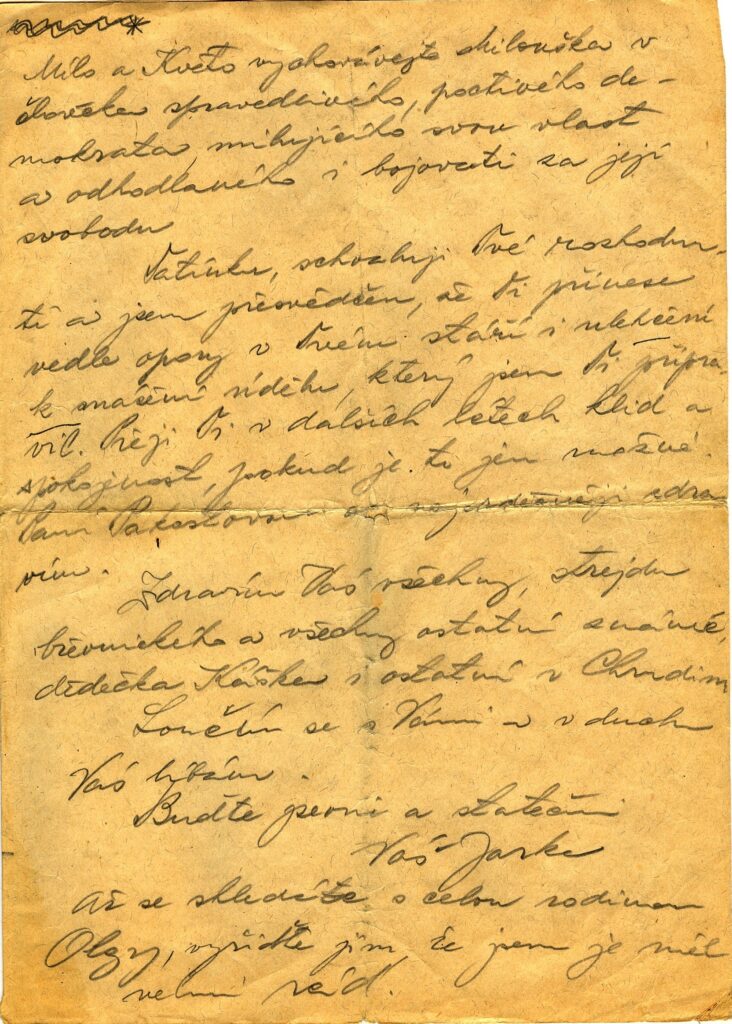 Mílo a Květo vychovávejte Milouška v
človíčka spravedlivého, poctivého de-
mokrata, milujícího svou vlast
a odhodlaného i bojovati za její
svobodu
Tatínku, schvaluji Tvé rozhodnu-
tí a jsem přesvědčen, že Ti přinese
vedle opory v Tvém stáří i ulehčení
k snášení údělu, který jsem Ti připra-
vil. Přeji Ti v dalších letech klid a
spokojnost, pokud je to jen možné.
Paní nejsrdečněji zdra
vím.
Zdravím Vás všechny, strejdu
břevnického a všechny ostatní známé,
dědečka Kašku i ostatní v Chrudim
Loučím se s Vámi a v duchu
Vás líbám.
Buďte pevni a stateční
Váš Jarka
Až se shledáte s celou rodinou
Olgy, vyřiďte jim, že jsem je měl
velmi rád.